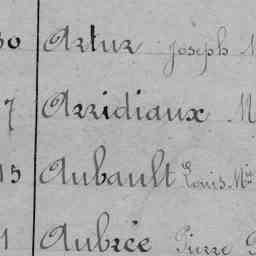 30 Artur Joseph M
7 Arridiaux M
15 Aubault Louis Mie
1 Aubrée Pierre